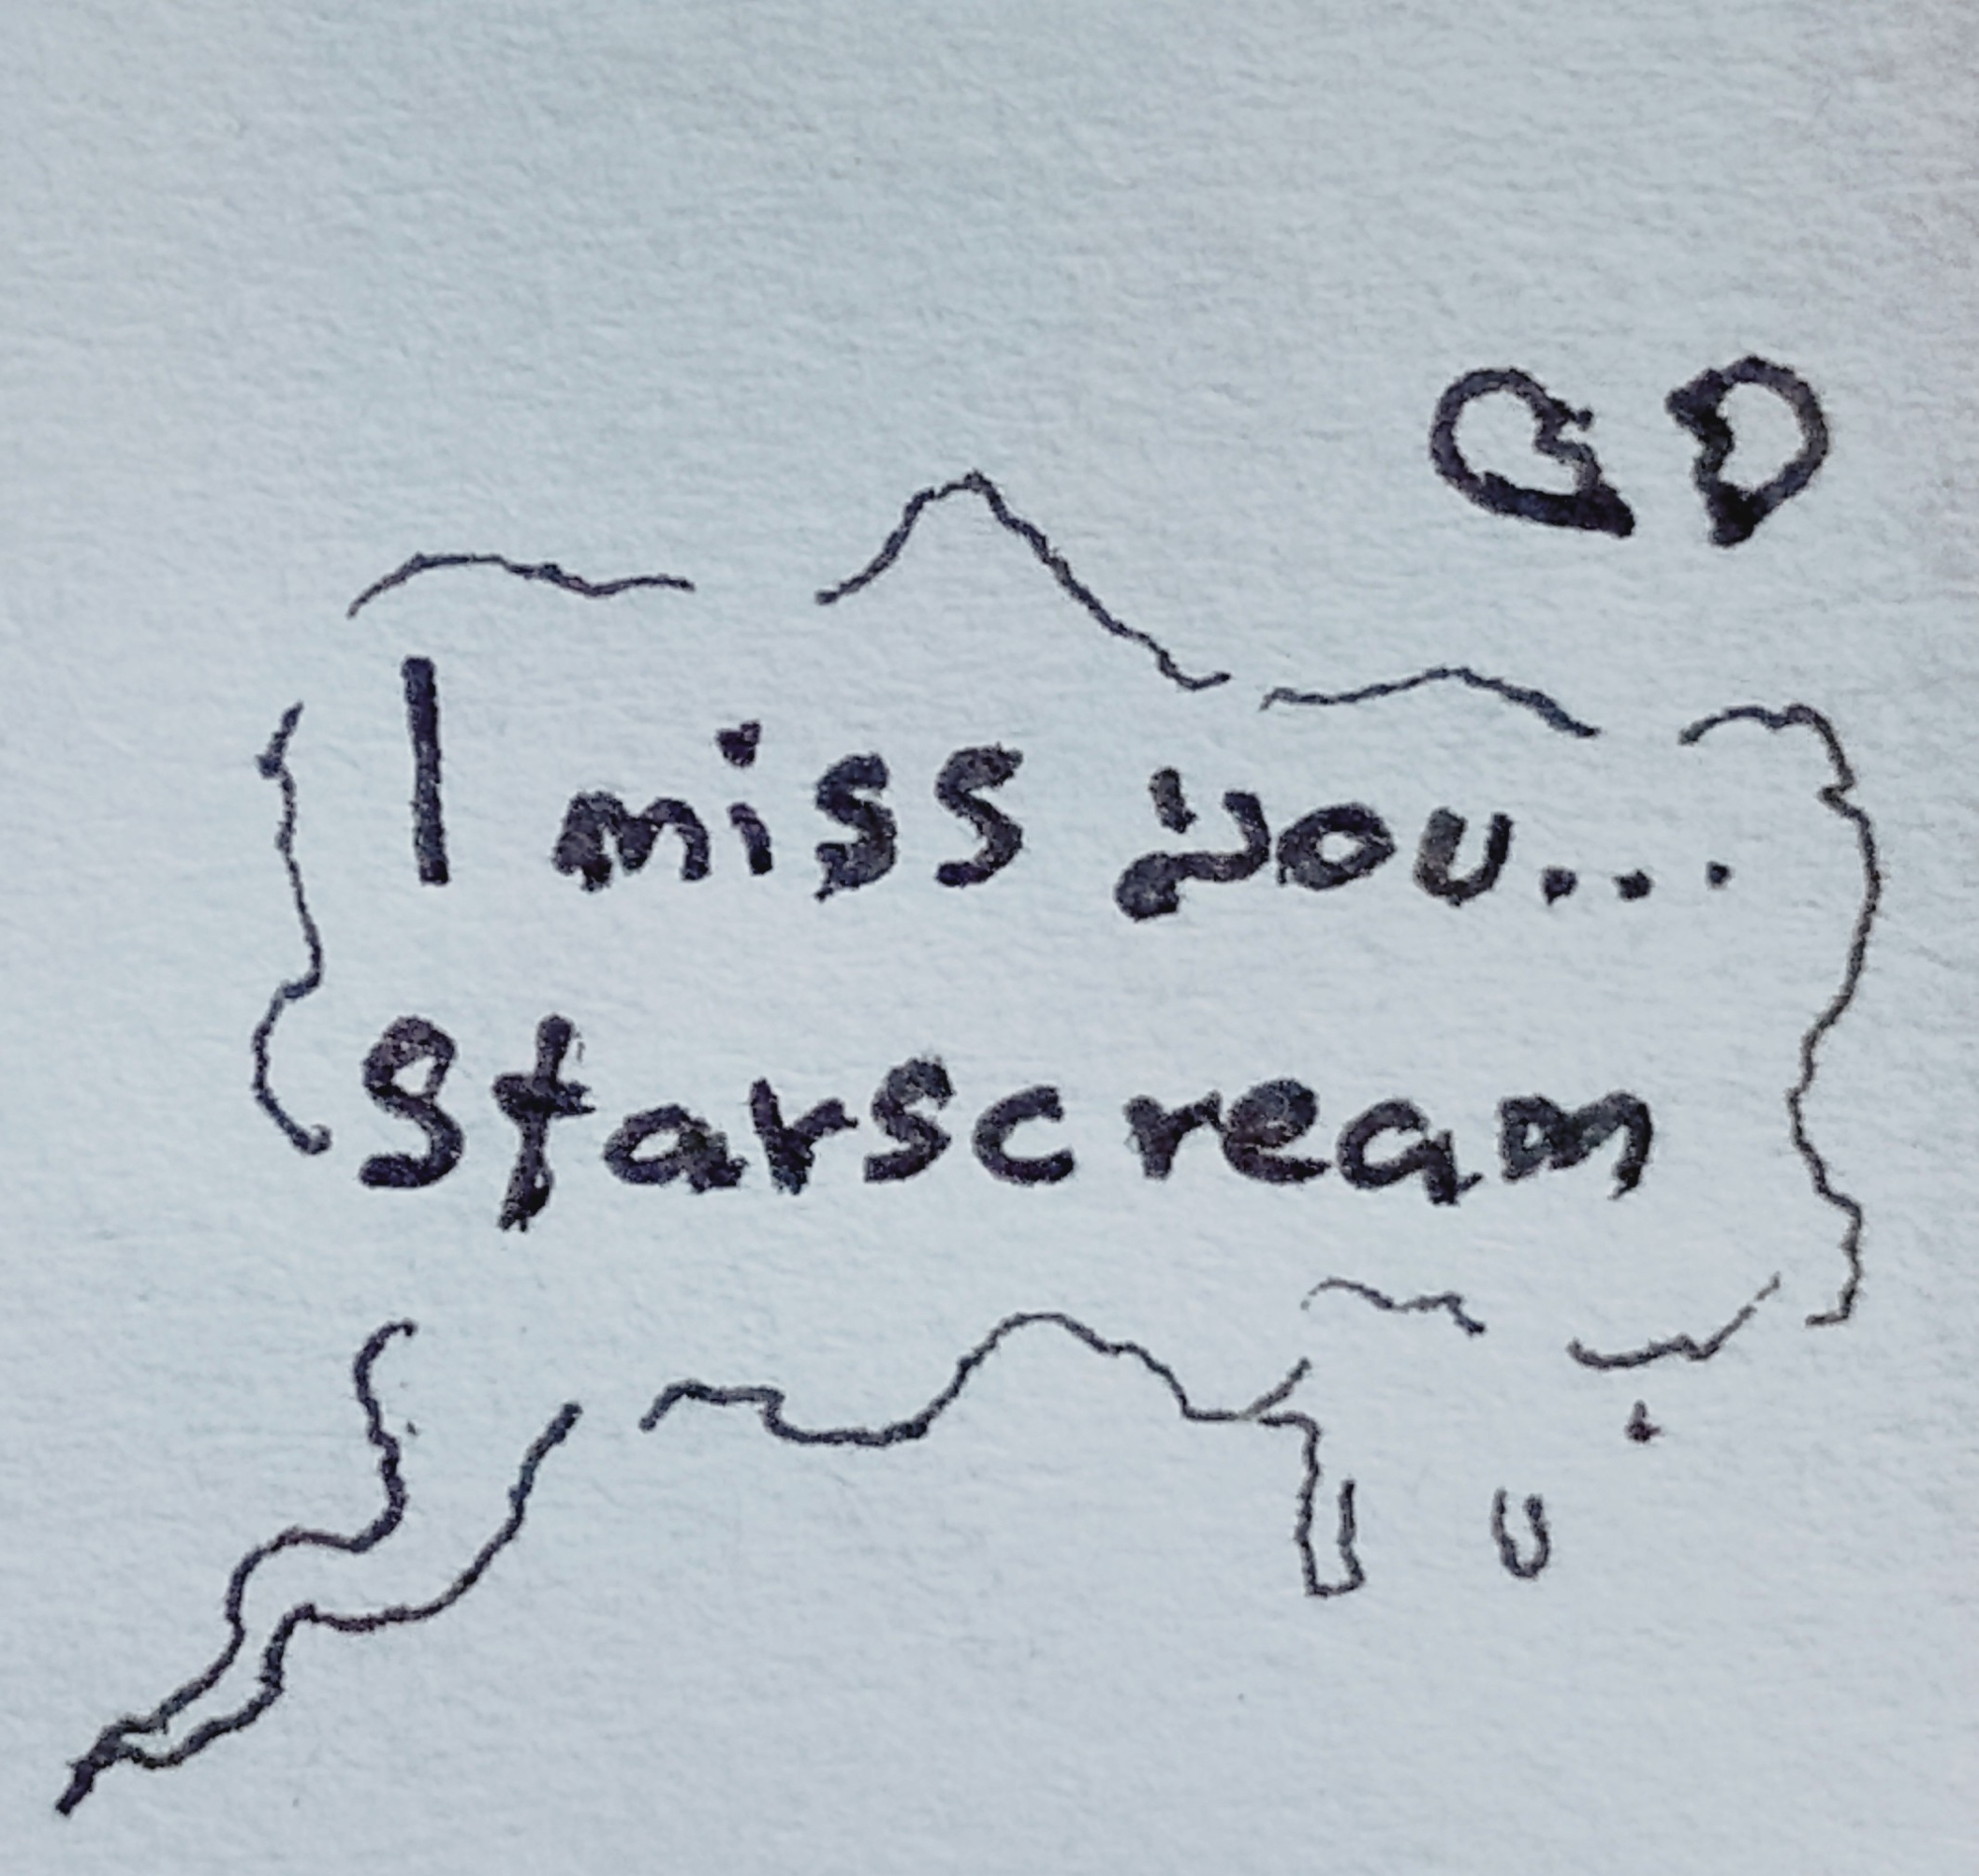 I miss you...
Starscream